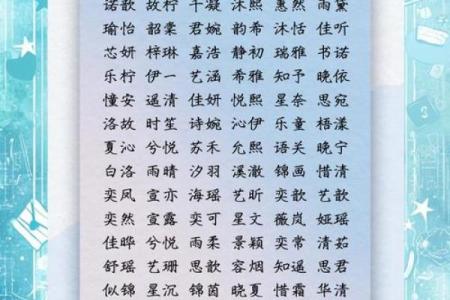 诺歌 故柠 千凝 沐熙 惠然 雨黛
瑜怡 韶棠 君婉 韵希 沐恬 佳听
芯妍 梓琳 嘉浩 静初 瑞雅 书诺
乐柠 伊一 艺涵 希雅 知予 晚依
憧安 遥清 佳妍 悦熙 星奈 思宛
洛故 时笙 诗婉 沁伊 乐童 梧漾
夏沁 兮悦 苏禾 允熙 语关 晚宁
白洛 雨晴 汐羽 溪澈 锦画 惜清
奕凤 宣亦 海瑶 艺昕 奕歌 艺歆
奕然 宣露 奕可 星文 薇岚 娅瑶
佳晔 兮悦 雨柔 景颖 奕常 清茹
舒瑶 艺珊 思歆 容烟 知遥 思君
似锦 星沉 锦茵 晓夏 惜霜 华清